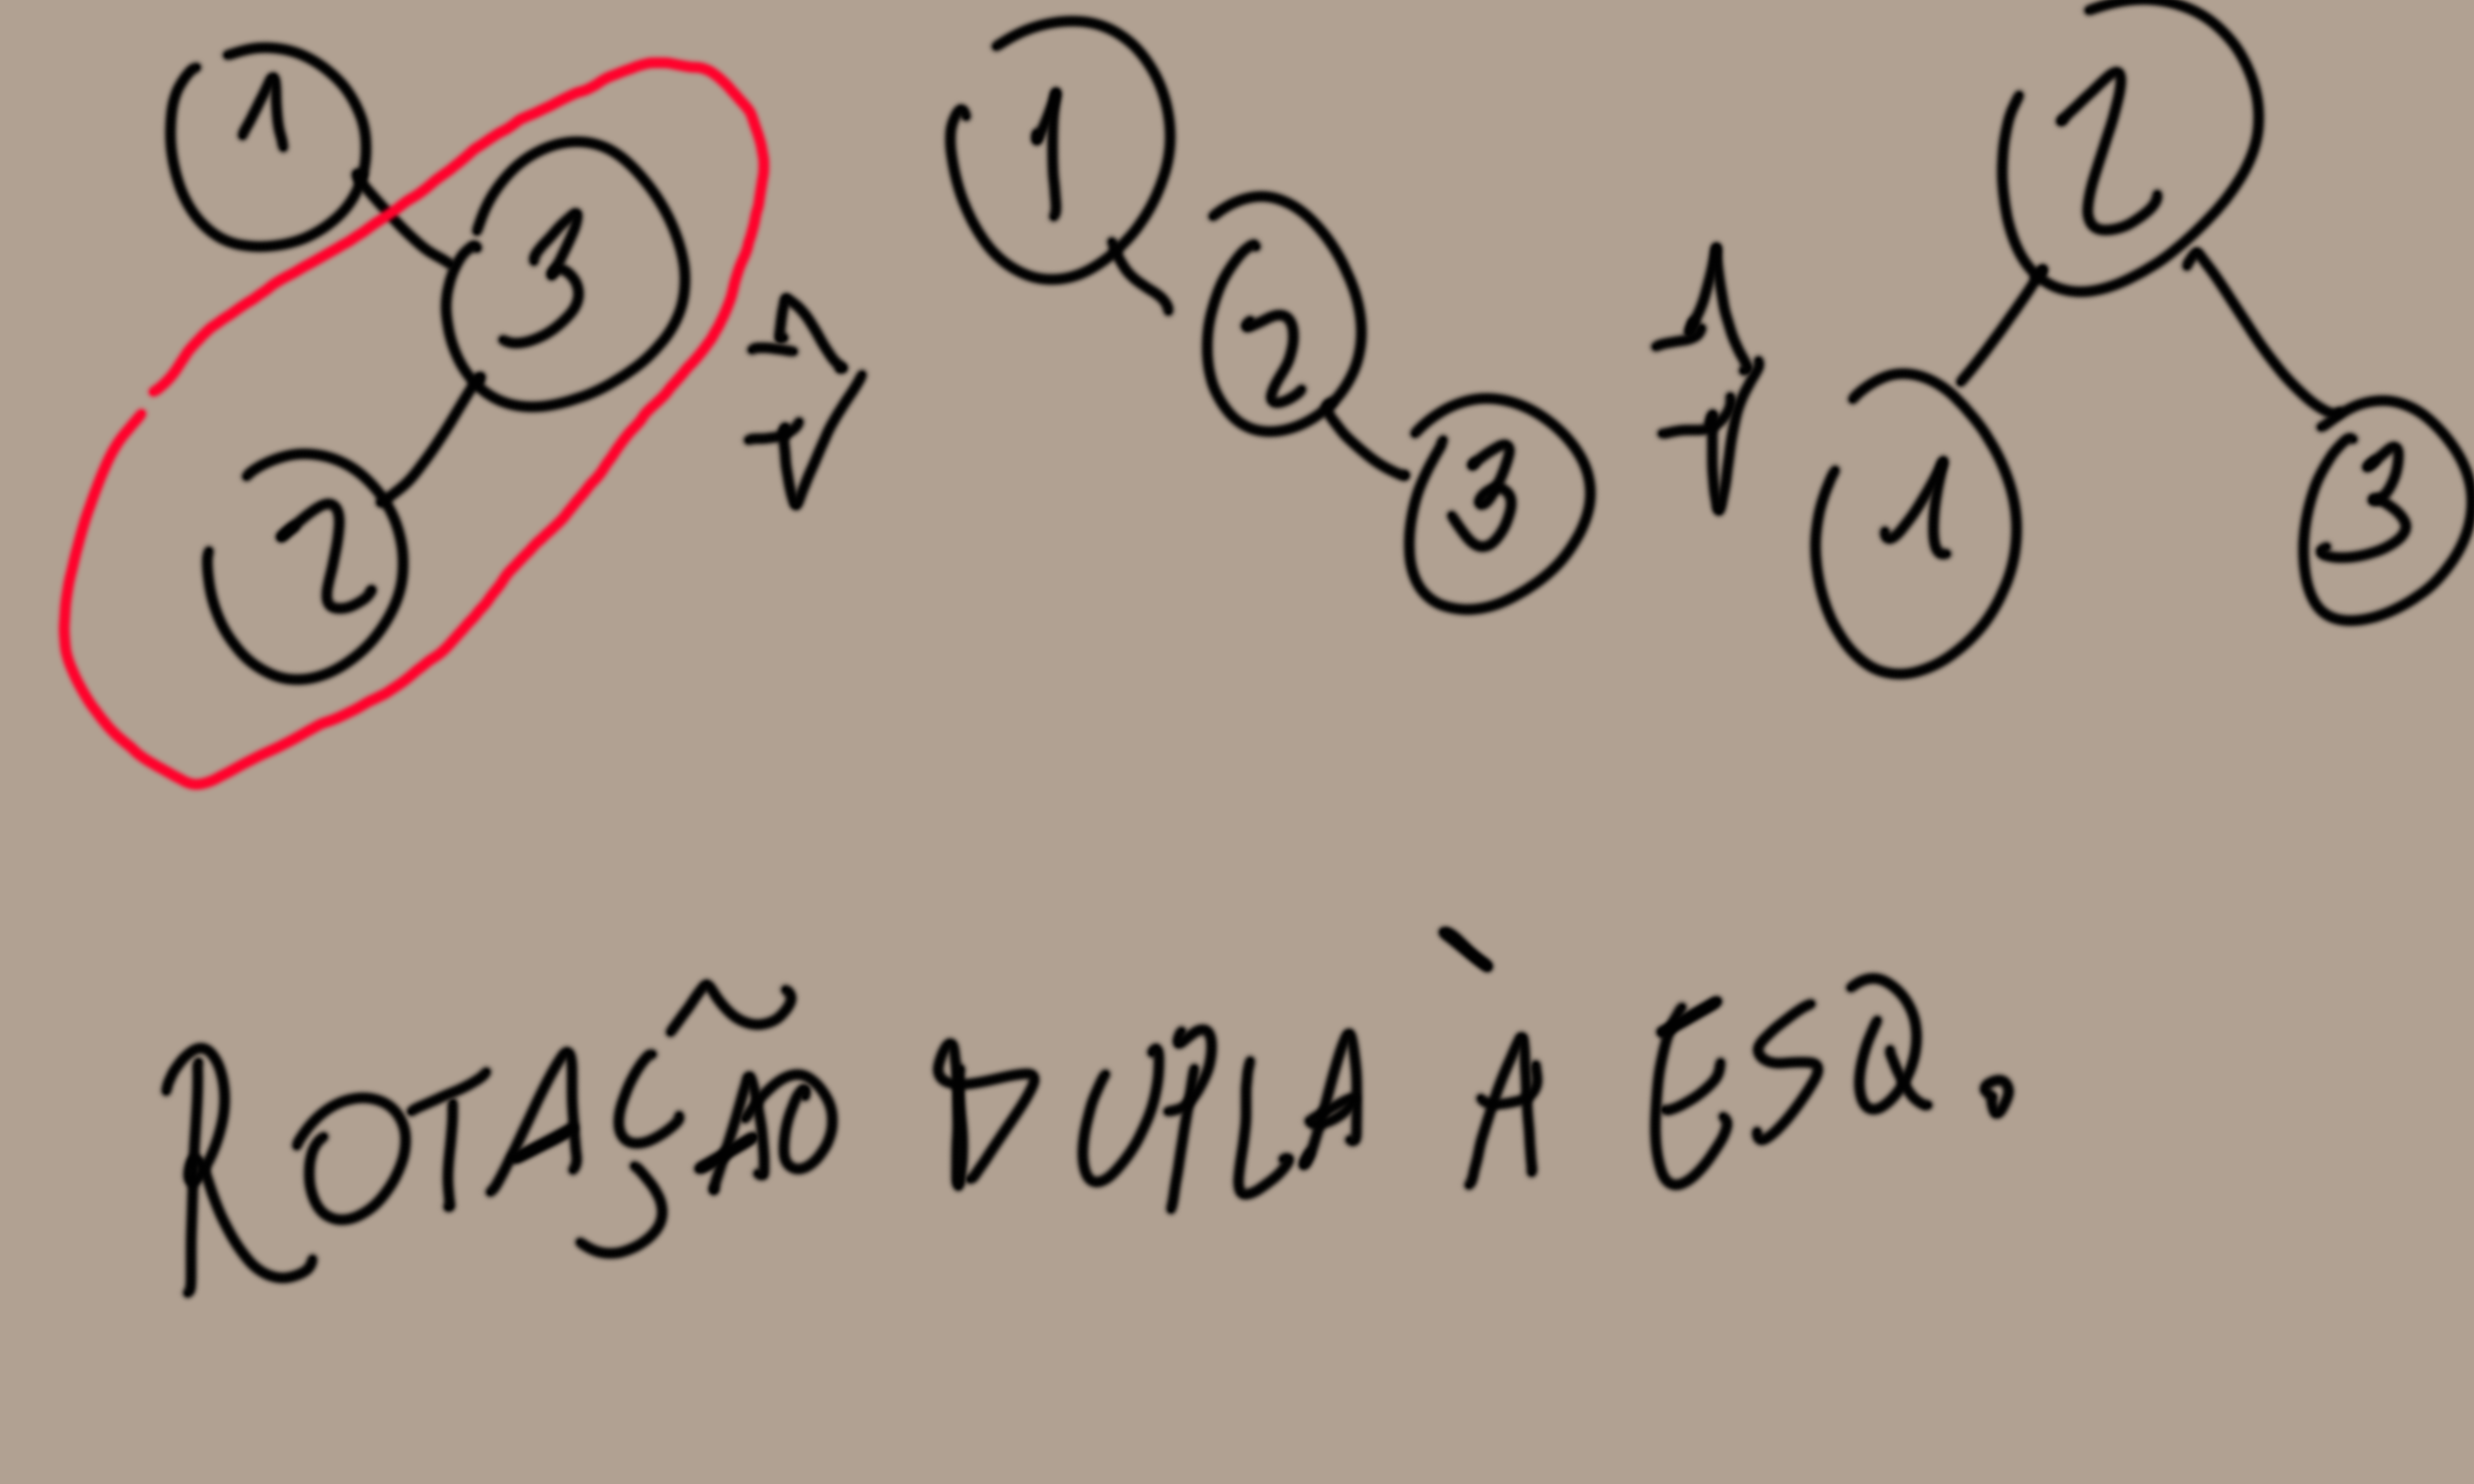 1 3 2 ⇒ 1 2 3 ⇒ 2 1 3
ROTAÇÃO DUPLA À ESQ.